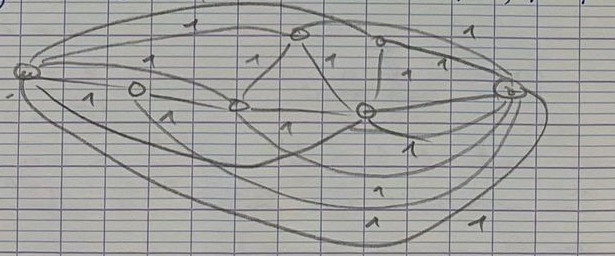 1
1
1
1
1
1
1
1
1
1
1
1
1
1